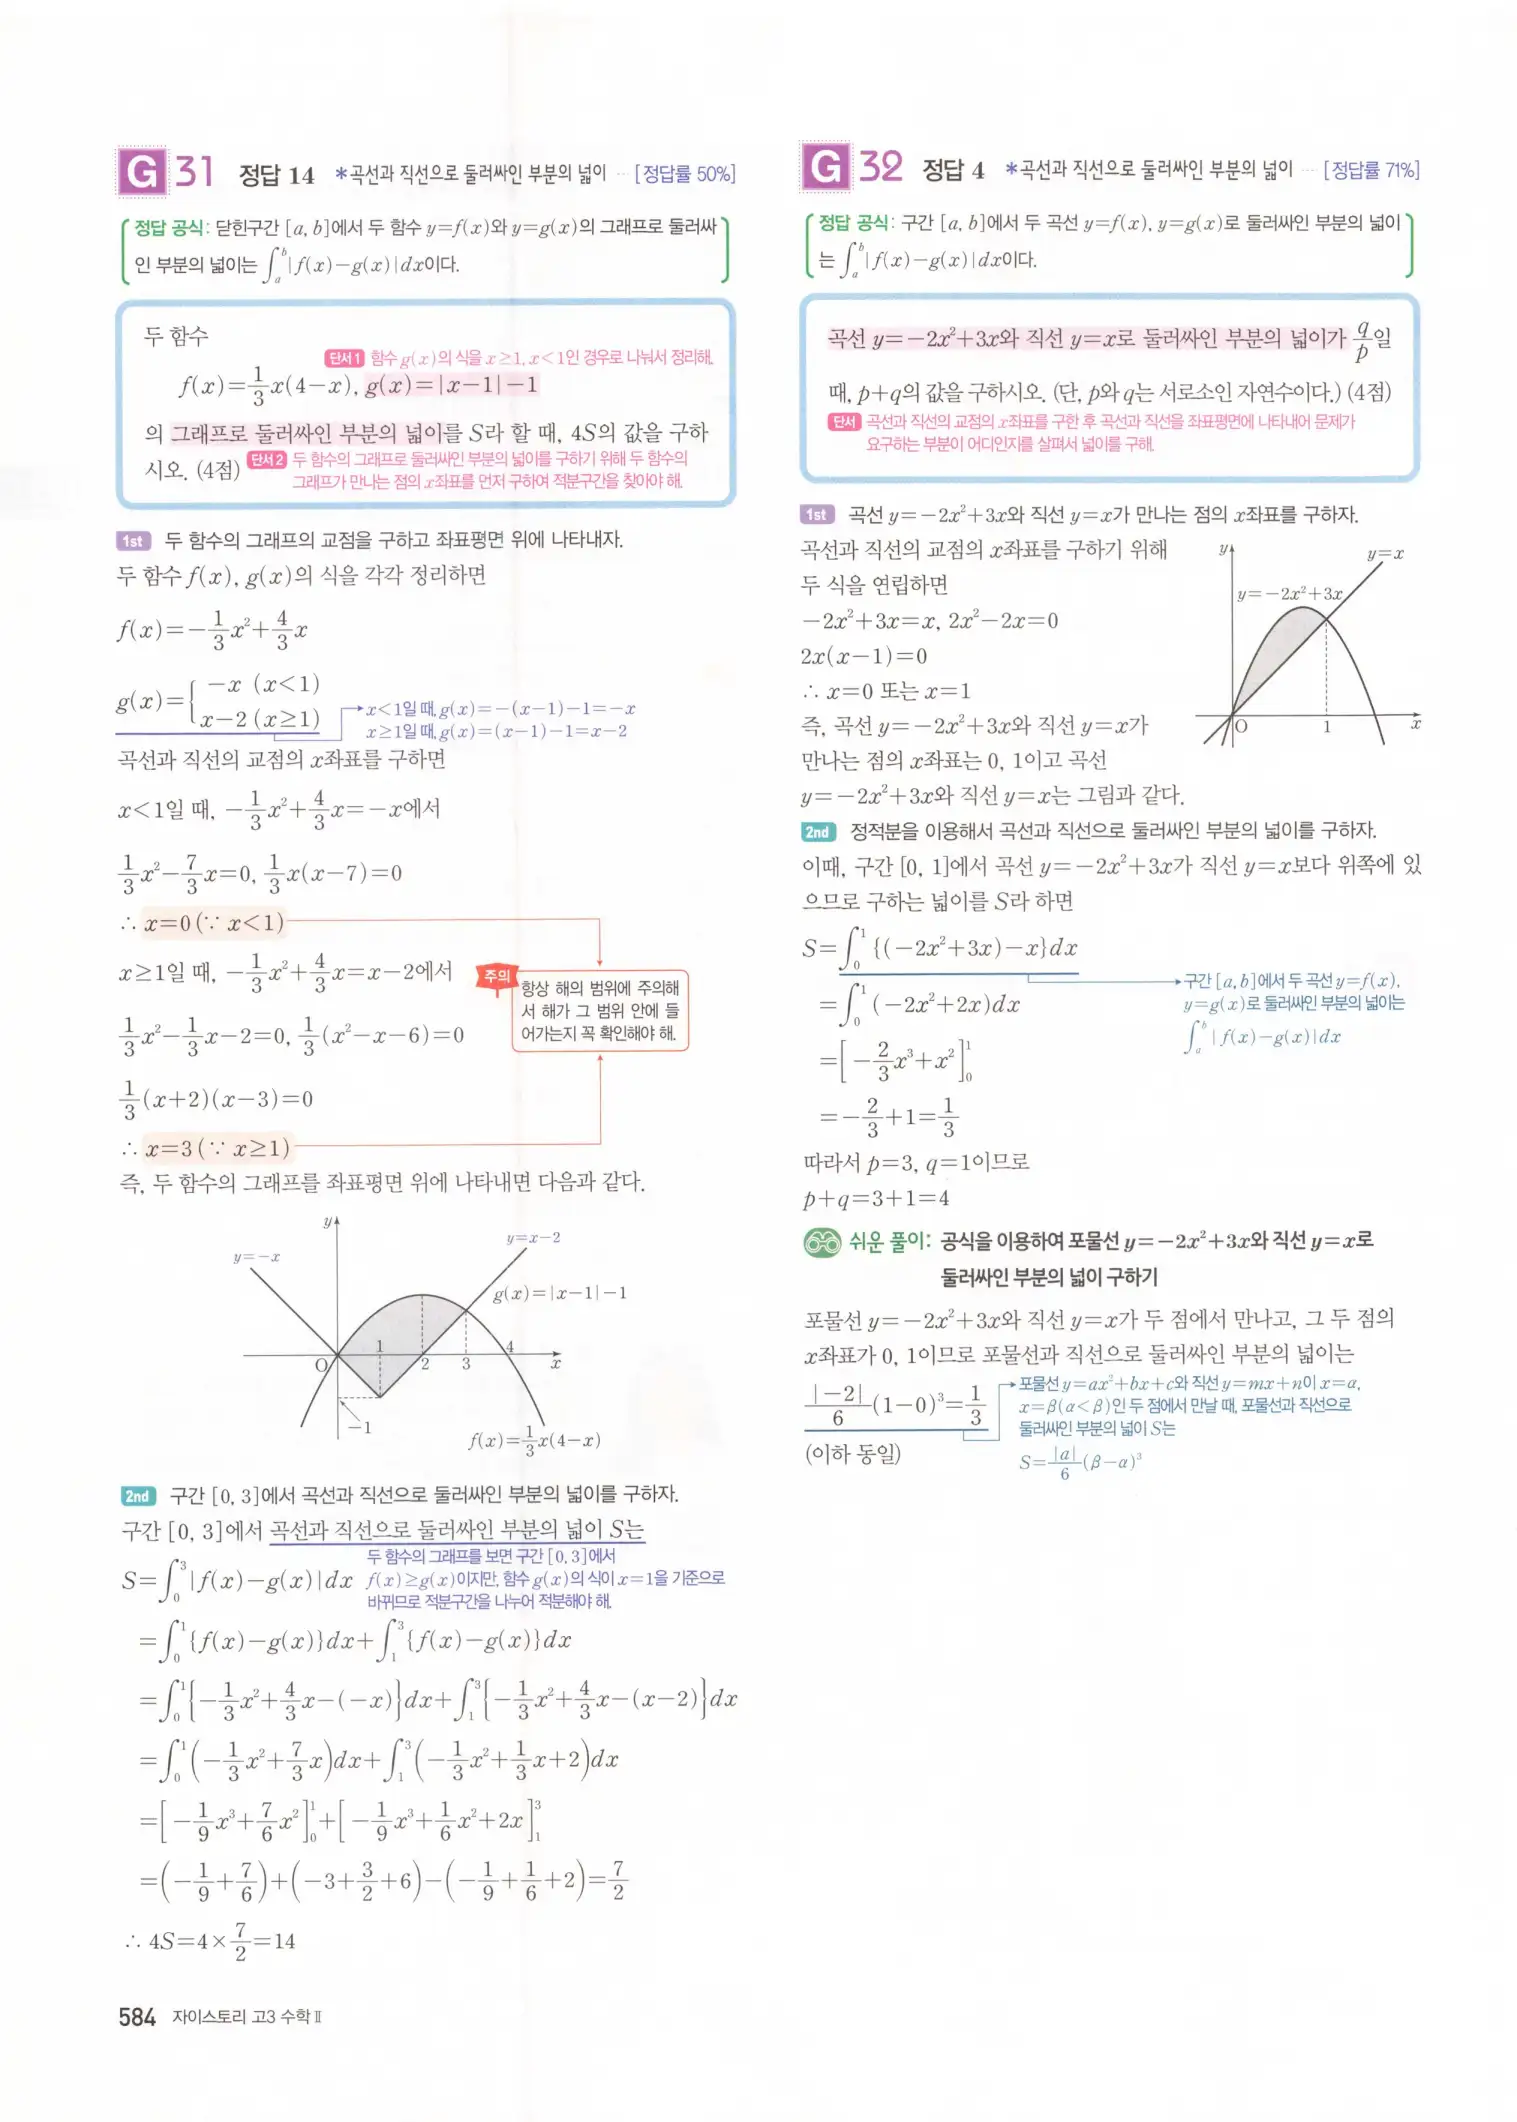 G 31 정답 14 *곡선과 직선으로 둘러싸인 부분의 넓이 ··· [정답률 50%]
정답 공식: 닫힌구간 [a, b]에서 두 함수 y=f(x)와 y=g(x)의 그래프로 둘러싸
인 부분의 넓이는 ∫_a^b |f(x)-g(x)|dx이다.
두 함수
단서1 함수 g(x)의 식을 x≥1, x<1인 경우로 나눠서 정리해.
f(x)=1/3x(4-x), g(x)=|x-1|-1
의 그래프로 둘러싸인 부분의 넓이를 S라 할 때, 4S의 값을 구하
시오. (4점) 단서2 두 함수의 그래프로 둘러싸인 부분의 넓이를 구하기 위해 두 함수의
그래프가 만나는 점의 x좌표를 먼저 구하여 적분구간을 찾아야 해.
1st 두 함수의 그래프의 교점을 구하고 좌표평면 위에 나타내자.
두 함수 f(x), g(x)의 식을 각각 정리하면
f(x)=-1/3x²+4/3x
g(x)={ -x (x<1)
x-2 (x≥1)
x<1일 때, g(x)=-(x-1)-1=-x
x≥1일 때, g(x)=(x-1)-1=x-2
곡선과 직선의 교점의 x좌표를 구하면
x<1일 때, -1/3x²+4/3x=-x에서
1/3x²-7/3x=0, 1/3x(x-7)=0
∴ x=0 (∵ x<1)
x≥1일 때, -1/3x²+4/3x=x-2에서
1/3x²-1/3x-2=0, 1/3(x²-x-6)=0
1/3(x+2)(x-3)=0
∴ x=3 (∵ x≥1)
주의
항상 해의 범위에 주의해
서 해가 그 범위 안에 들
어가는지 꼭 확인해야 해.
즉, 두 함수의 그래프를 좌표평면 위에 나타내면 다음과 같다.
y
y=x-2
y=-x
g(x)=|x-1|-1
1
4
O
2
3
x
-1
f(x)=1/3x(4-x)
2nd 구간 [0, 3]에서 곡선과 직선으로 둘러싸인 부분의 넓이를 구하자.
구간 [0, 3]에서 곡선과 직선으로 둘러싸인 부분의 넓이 S는
두 함수의 그래프를 보면 구간 [0, 3]에서
f(x)≥g(x)이지만, 함수 g(x)의 식이 x=1을 기준으로
바뀌므로 적분구간을 나누어 적분해야 해.
S=∫_0^3 |f(x)-g(x)|dx
=∫_0^1 {f(x)-g(x)}dx+∫_1^3 {f(x)-g(x)}dx
=∫_0^1 {-1/3x²+4/3x-(-x)}dx+∫_1^3 {-1/3x²+4/3x-(x-2)}dx
=∫_0^1 (-1/3x²+7/3x)dx+∫_1^3 (-1/3x²+1/3x+2)dx
=[-1/9x³+7/6x²]_0^1+[-1/9x³+1/6x²+2x]_1^3
=(-1/9+7/6)+(-3+3/2+6)-(-1/9+1/6+2)=7/2
∴ 4S=4×7/2=14
584 자이스토리 고3 수학Ⅱ
G 32 정답 4 *곡선과 직선으로 둘러싸인 부분의 넓이 ··· [정답률 71%]
정답 공식: 구간 [a, b]에서 두 곡선 y=f(x), y=g(x)로 둘러싸인 부분의 넓이
는 ∫_a^b |f(x)-g(x)|dx이다.
곡선 y=-2x²+3x와 직선 y=x로 둘러싸인 부분의 넓이가 q/p일
때, p+q의 값을 구하시오. (단, p와 q는 서로소인 자연수이다.) (4점)
단서 곡선과 직선의 교점의 x좌표를 구한 후 곡선과 직선을 좌표평면에 나타내어 문제가
요구하는 부분이 어디인지를 살펴서 넓이를 구해.
1st 곡선 y=-2x²+3x와 직선 y=x가 만나는 점의 x좌표를 구하자.
곡선과 직선의 교점의 x좌표를 구하기 위해
두 식을 연립하면
-2x²+3x=x, 2x²-2x=0
2x(x-1)=0
∴ x=0 또는 x=1
즉, 곡선 y=-2x²+3x와 직선 y=x가
만나는 점의 x좌표는 0, 1이고 곡선
y=-2x²+3x와 직선 y=x는 그림과 같다.
y
y=x
y=-2x²+3x
O
1
x
2nd 정적분을 이용해서 곡선과 직선으로 둘러싸인 부분의 넓이를 구하자.
이때, 구간 [0, 1]에서 곡선 y=-2x²+3x가 직선 y=x보다 위쪽에 있
으므로 구하는 넓이를 S라 하면
S=∫_0^1 {(-2x²+3x)-x}dx
=∫_0^1 (-2x²+2x)dx
=[-2/3x³+x²]_0^1
=-2/3+1=1/3
구간 [a, b]에서 두 곡선 y=f(x),
y=g(x)로 둘러싸인 부분의 넓이는
∫_a^b |f(x)-g(x)|dx
따라서 p=3, q=1이므로
p+q=3+1=4
쉬운 풀이: 공식을 이용하여 포물선 y=-2x²+3x와 직선 y=x로
둘러싸인 부분의 넓이 구하기
포물선 y=-2x²+3x와 직선 y=x가 두 점에서 만나고, 그 두 점의
x좌표가 0, 1이므로 포물선과 직선으로 둘러싸인 부분의 넓이는
|-2|/6(1-0)³=1/3
포물선 y=ax²+bx+c와 직선 y=mx+n이 x=α,
x=β(α<β)인 두 점에서 만날 때, 포물선과 직선으로
둘러싸인 부분의 넓이 S는
S=|a|/6(β-α)³
(이하 동일)